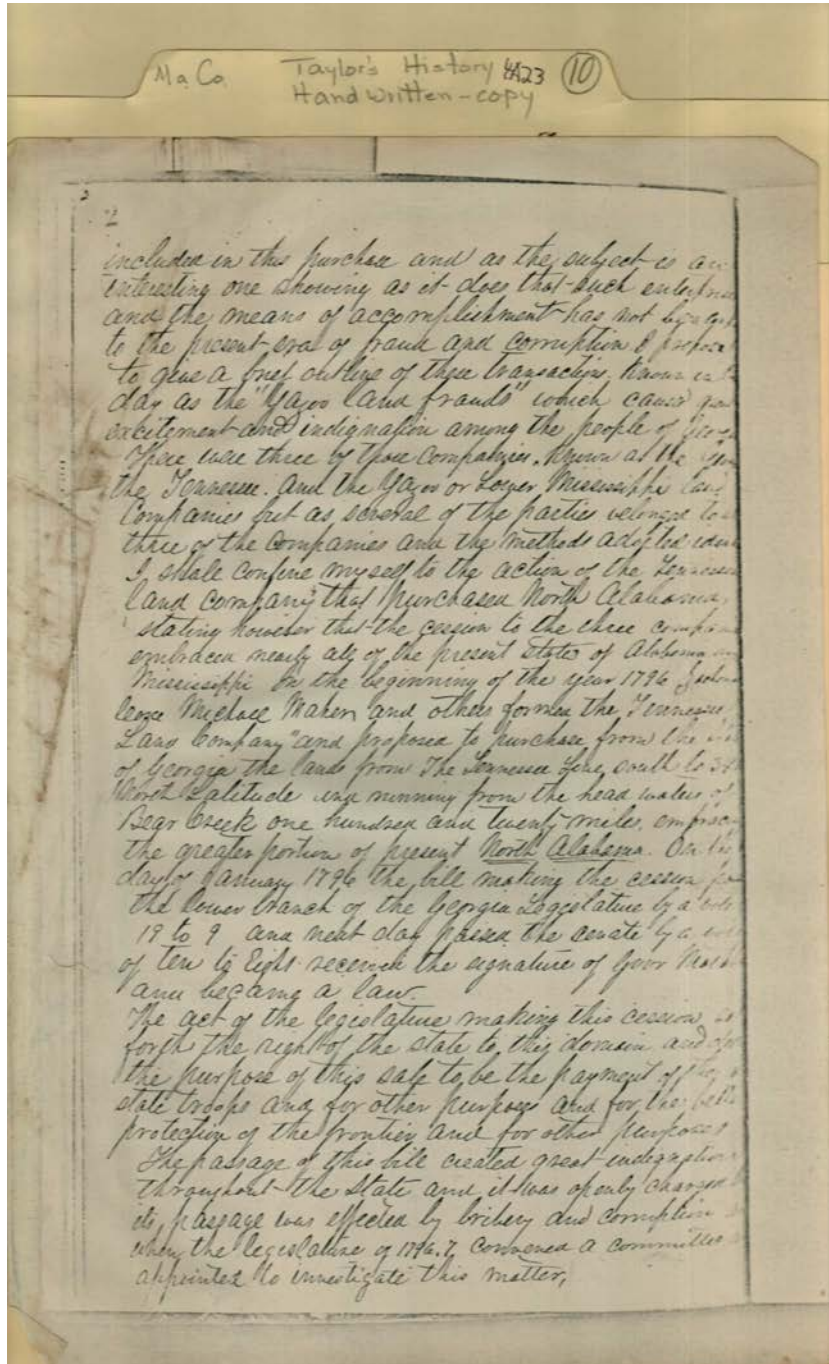 Ma. Co. Taylor's History 4A23 10
Handwritten-copy
2
2
included in this purchase and as the subject is an
interesting one showing as it does that such
and the means of accomplishment has not
to the present era of fraud and corruption I propose
to give a brief outline of these transactions. Known in
day as the "Yazoo land frauds" which caused
excitement and indignation among the people of
There were three of those companies, known as the
the Tennessee. and the Yazoo or Lower Mississippi land
Companies but as several of the parties belonged to
three of the companies and the methods adopted
I shall confine myself to the action of the Tennessee
land company that purchased North Alabama,
stating however that the cession to the three
embraced nearly all of the present State of Alabama
Mississippi In the beginning of the year 1796
Michael and others formed the Tennessee
Land Company" and proposed to purchase from the
of Georgia the lands from The Tennessee Line, south to
North Latitude and running from the head waters of
Bear Creek one hundred and twenty miles,
the greater portion of present North Alabama. On the
day of January 1796 the bill making the cession
the lower branch of the Georgia Legislature by a
19 to 9 and next day passed the cenate by a
of ten to Eight received the signature of Govr
and became a law.
The act of the legislature making this cession
forth the right of the state to this domain and
the purpose of this sale to be the payment of
state troops and for other purposes and for the
protection of the frontier and for other purposes
The passage of this bill created great indignation
throughout the state and it was openly charged
its passage was effected by bribery and corruption
when the legislature of 1796.7 convened a committee
appointed to investigate this matter,